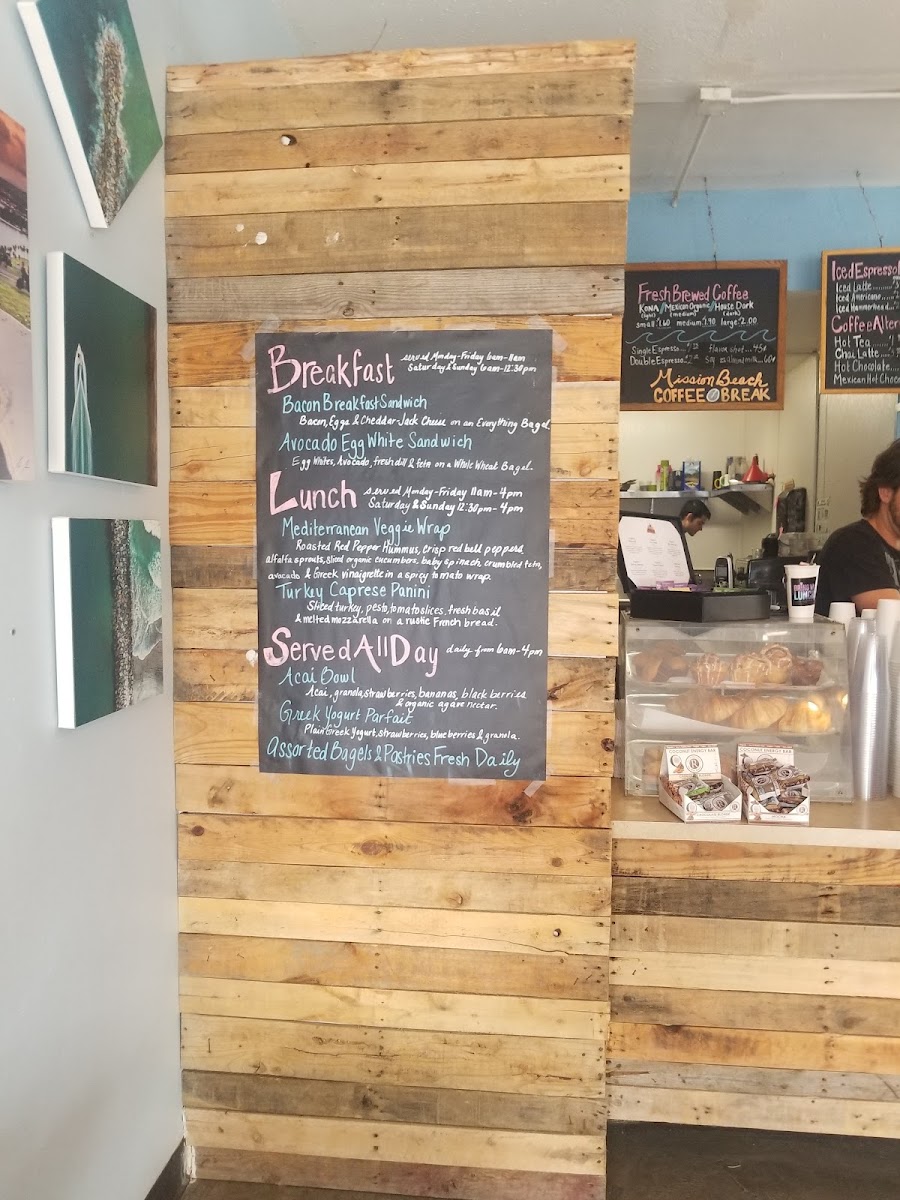 Breakfast served Monday-Friday 6am-11am
Saturday & Sunday 6am-12:30pm
Bacon Breakfast Sandwich
Bacon, Eggs & Cheddar-Jack Cheese on an Everything Bagel
Avocado Egg White Sandwich
Egg Whites, Avocado, fresh dill & feta on a Whole Wheat Bagel.
Lunch served Monday-Friday 11am-4pm
Saturday & Sunday 12:30pm-4pm
Mediterranean Veggie Wrap
Roasted Red Pepper Hummus, crisp red bell peppers,
alfalfa sprouts, sliced organic cucumbers, baby spinach, crumbled feta,
avocado & Greek vinaigrette in a spicy tomato wrap.
Turkey Caprese Panini
Sliced turkey, pesto, tomato slices, fresh basil
& melted mozzarella on a rustic French bread.
Served All Day daily from 6am-4pm
Acai Bowl
Acai, granola, strawberries, bananas, blackberries
& organic agave nectar.
Greek Yogurt Parfait
Plain Greek Yogurt, strawberries, blueberries & granola.
Assorted Bagels & Pastries Fresh Daily
Fresh Brewed Coffee
Kona/Mexican Organic/House Dark
(light) (medium) (dark)
small 1.60 medium 1.90 large 2.00
Single Espresso
flavor shot....45¢
Double Espresso
Soy or almond milk..60¢
Mission Beach
COFFEE BREAK
Iced Espresso
Iced Latte
Iced Americano
Iced Hammerhead
Coffee Alter
Hot Tea
Chai Latte
Hot Chocolate
Mexican Hot Choco
COCONUT ENERGY BAR
COCONUT ENERGY BAR